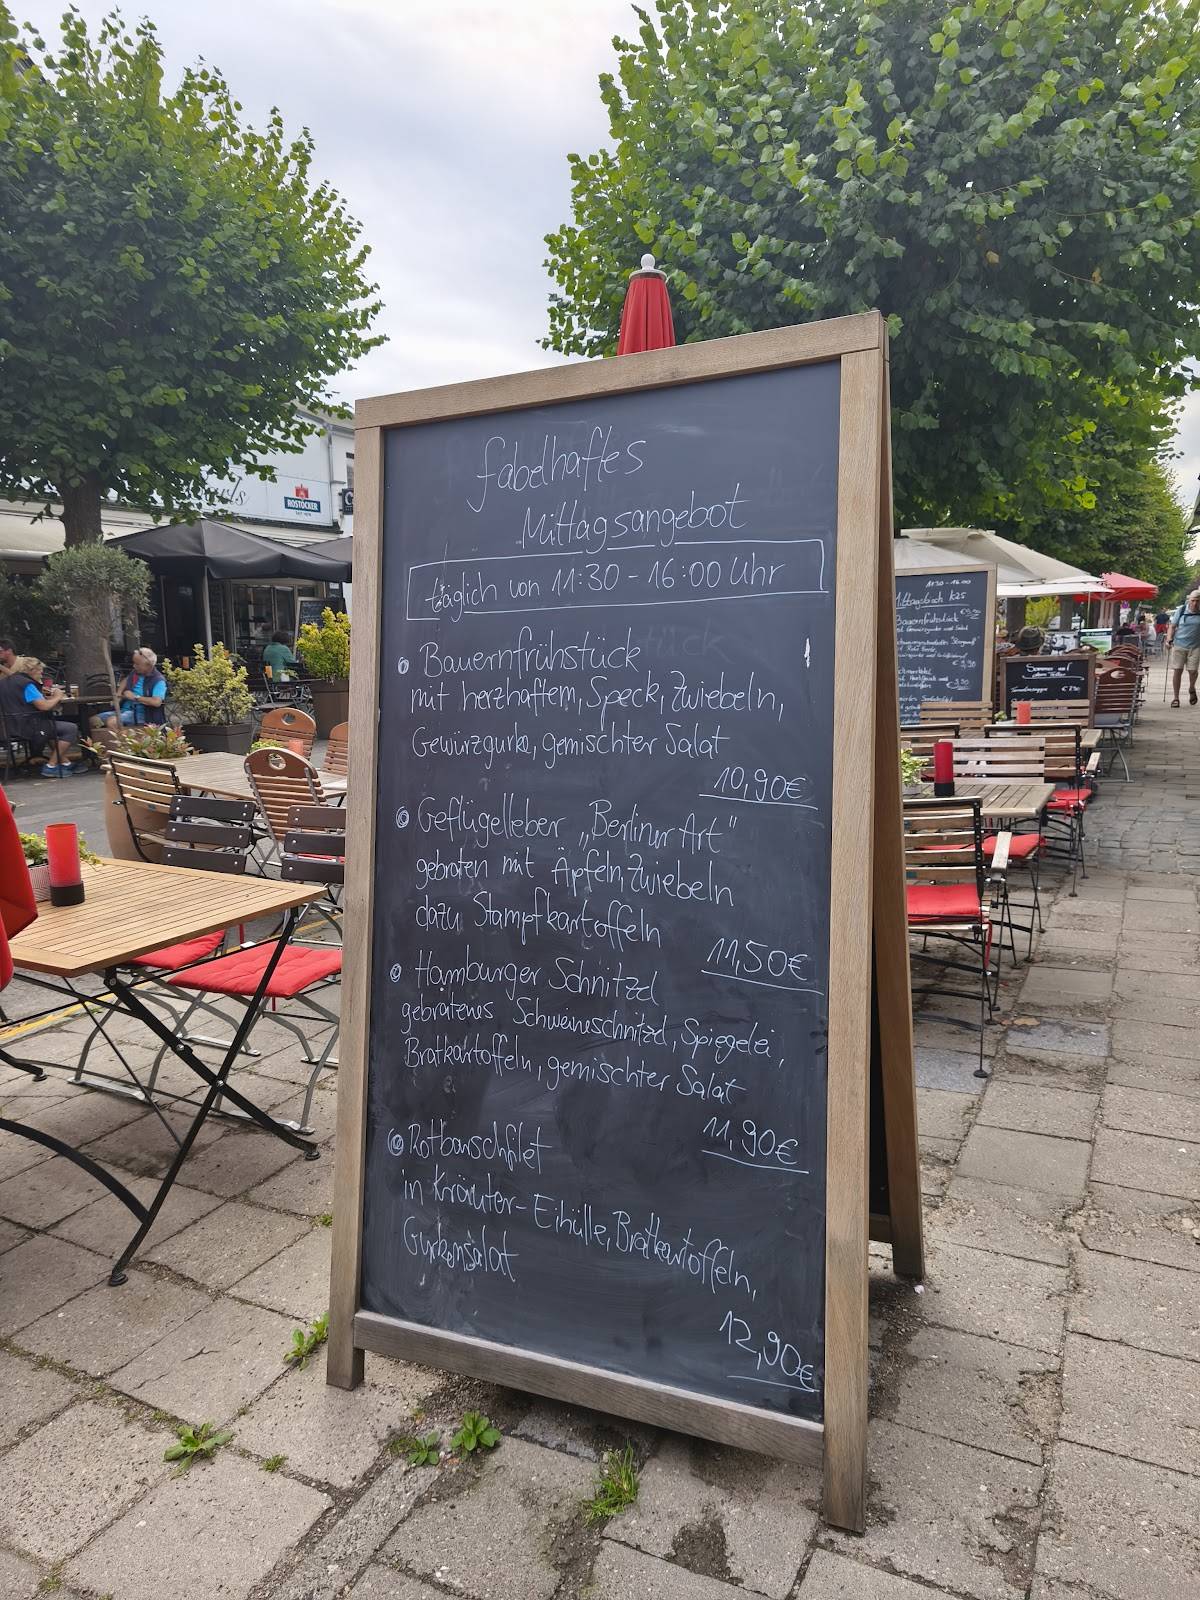 fabelhaftes
Mittagsangebot
täglich von 11:30 - 16:00 Uhr
Bauernfrühstück
mit herzhaftem, Speck, Zwiebeln,
Gewürzgurke, gemischter Salat
10,90€
Geflügelleber „Berliner Art"
gebraten mit Äpfeln, Zwiebeln
dazu Stampfkartoffeln
11,50€
Hamburger Schnitzel
gebratenes Schweineschnitzel, Spiegelei,
Bratkartoffeln, gemischter Salat
11,90€
Rotbarschfilet
in Kräuter-Eihülle, Bratkartoffeln,
Gurkensalat
12,90€
ROSTOCKER
11:30 - 16:00
Bauernfrühstück
€ 9,90